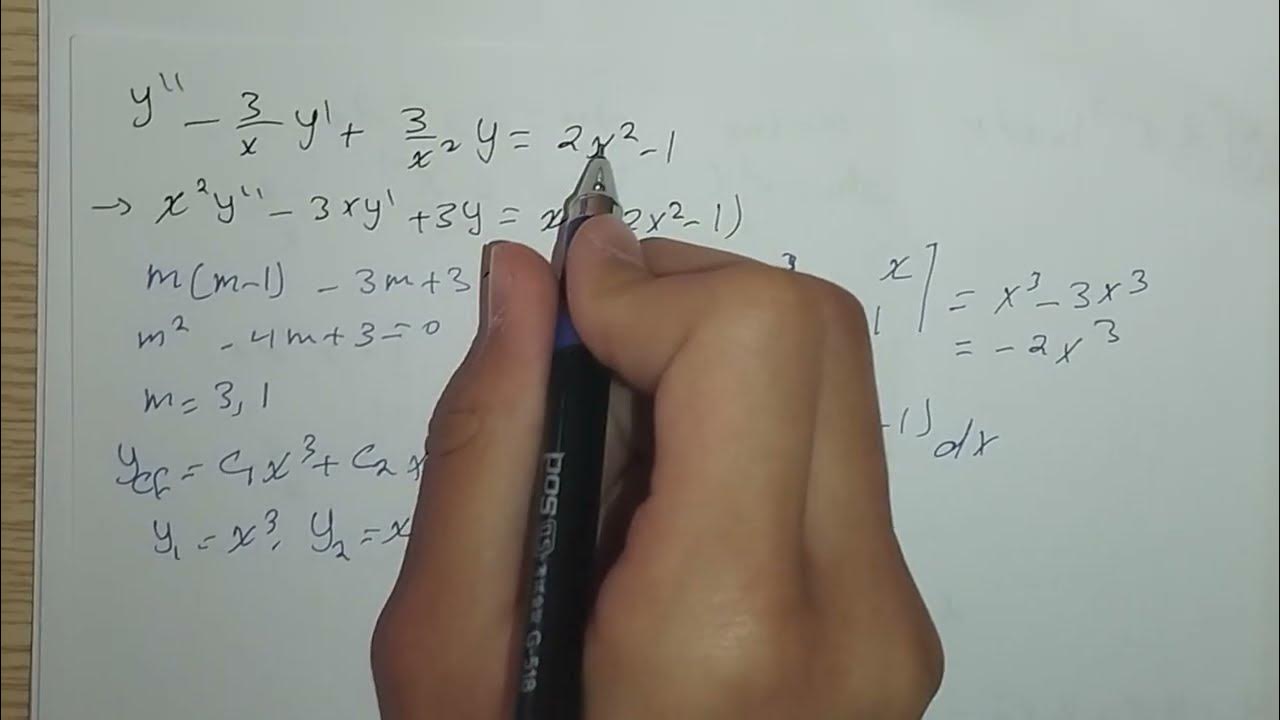 y'' - 3/x y' + 3/x² y = 2x² - 1
→ x²y'' - 3xy' + 3y = x 2x² - 1)
m(m-1) - 3m + 3
m² - 4m + 3 = 0
m = 3, 1
y_CF = C₁x³ + C₂x
y₁ = x³, y₂ = x
3 x
1 | = x³ - 3x³
= -2x³
-1) dx
G-518